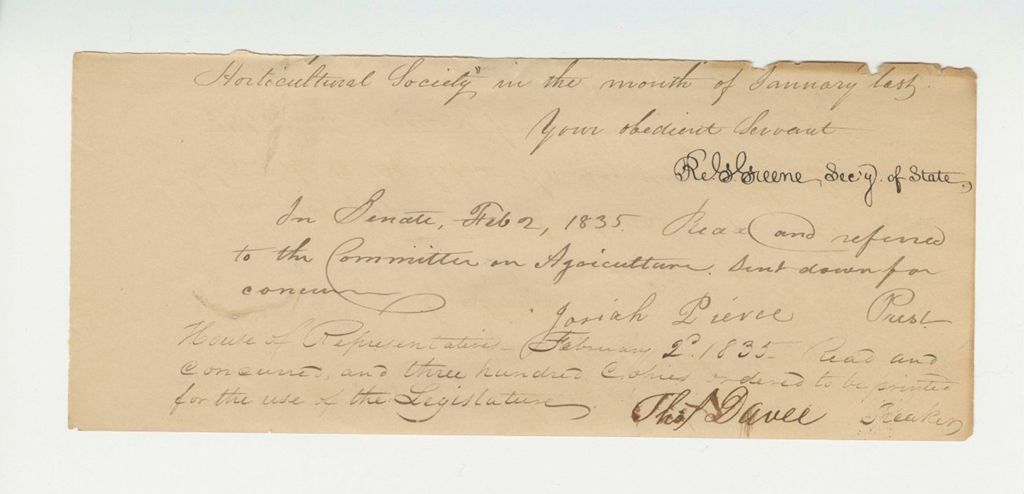 Horticultural Society" in the month of January last.
Your obedient Servant
R. G. Greene, Sec'y. of State.
In Senate, Feb 2, 1835. Read and referred
to the Committee on Agriculture. Sent down for
concurr
Josiah Pierce Prest
House of Representatives - February 2d. 1835 - Read and
concurred, and three hundred Copies ordered to be printed
for the use of the Legislature
Thos Davee Speaker